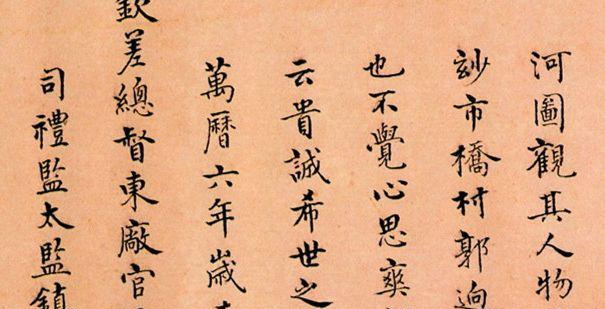 河圖觀其人物
玅市橋村郭迥
也不覺心思爽
云貴誠希世之
萬曆六年歲
欽差總督東廠官
司禮監太監鎮